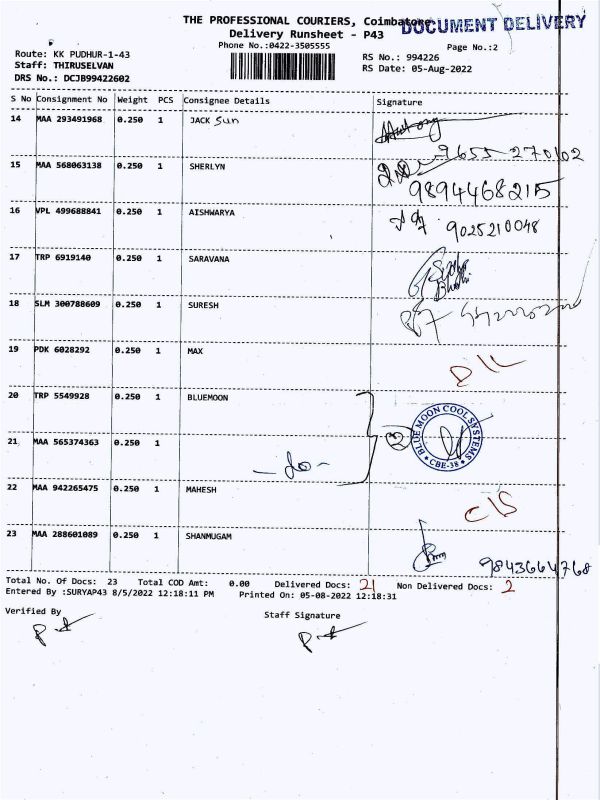 THE PROFESSIONAL COURIERS, Coimbatore
DOCUMENT DELIVERY
Delivery Runsheet - P43
Phone No.:0422-3505555
Page No.:2
Route: KK PUDHUR-1-43
RS No.: 994226
Staff: THIRUSELVAN
RS Date: 05-Aug-2022
DRS No.: DCJB99422602
S No Consignment No Weight PCS Consignee Details Signature
14 MAA 293491968 0.250 1 JACK Sun
9655 270102
15 MAA 568063138 0.250 1 SHERLYN
9894468215
16 VPL 499688841 0.250 1 AISHWARYA
9025210048
17 TRP 6919140 0.250 1 SARAVANA
18 SLM 300788609 0.250 1 SURESH
19 PDK 6028292 0.250 1 MAX
D/L
20 TRP 5549928 0.250 1 BLUEMOON
BLUE MOON COOL SYSTEMS
* CBE-38 *
21 MAA 565374363 0.250 1
- do -
22 MAA 942265475 0.250 1 MAHESH
C/S
23 MAA 288601089 0.250 1 SHANMUGAM
9843664768
Total No. Of Docs: 23 Total COD Amt: 0.00 Delivered Docs: 21 Non Delivered Docs: 2
Entered By :SURYAP43 8/5/2022 12:18:11 PM Printed On: 05-08-2022 12:18:31
Verified By
Staff Signature